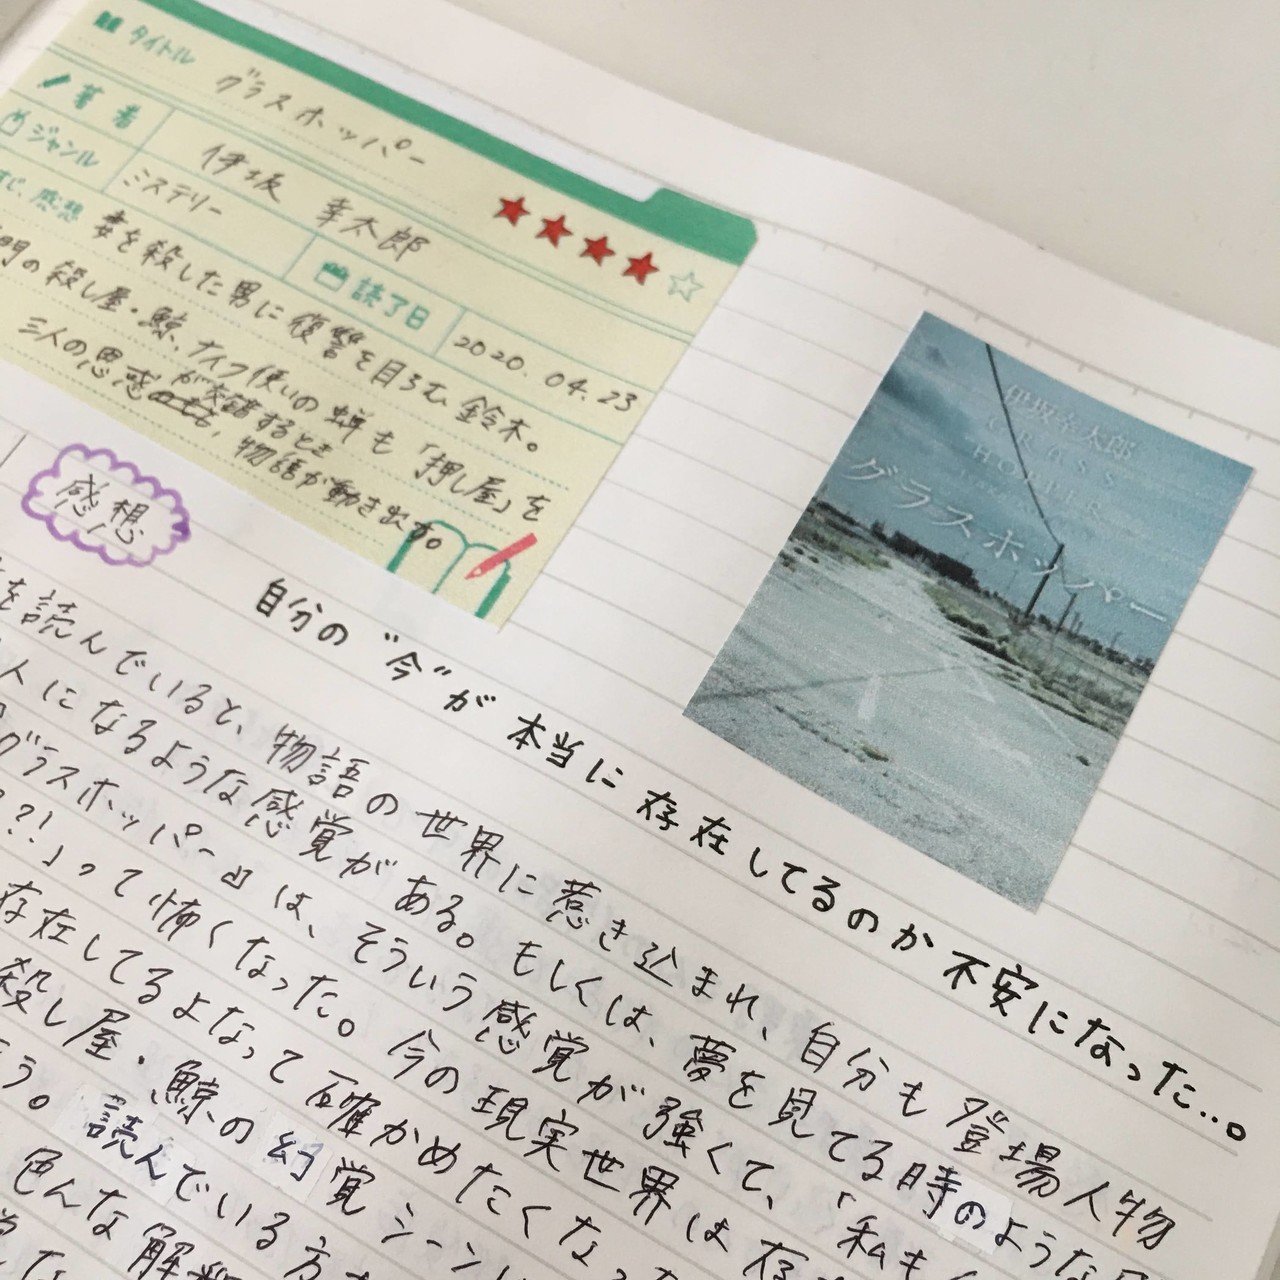 タイトル
グラスホッパー
著者
伊坂 幸太郎
ジャンル
ミステリー
読了日
2020.04.23
感想
妻を殺した男に復讐を目ろむ鈴木。
の殺し屋・鯨、ナイフ使いの蝉も「押し屋」を
が交錯するとき
三人の思惑 、物語が動き出す。
感想
伊坂幸太郎
グラスホッパー
自分の"今"が本当に存在してるのか不安になった…。
を読んでいると、物語の世界に惹き込まれ、自分も登場人物
人になるような感覚がある。もしくは、夢を見てる時のような
グラスホッパー』は、そういう感覚が強くて、「私も
??!」って怖くなった。今の現実世界は存
存在してるよなって確かめたくなっ
殺し屋・鯨の幻覚シーン
う。読んでいる方
色んな解釈